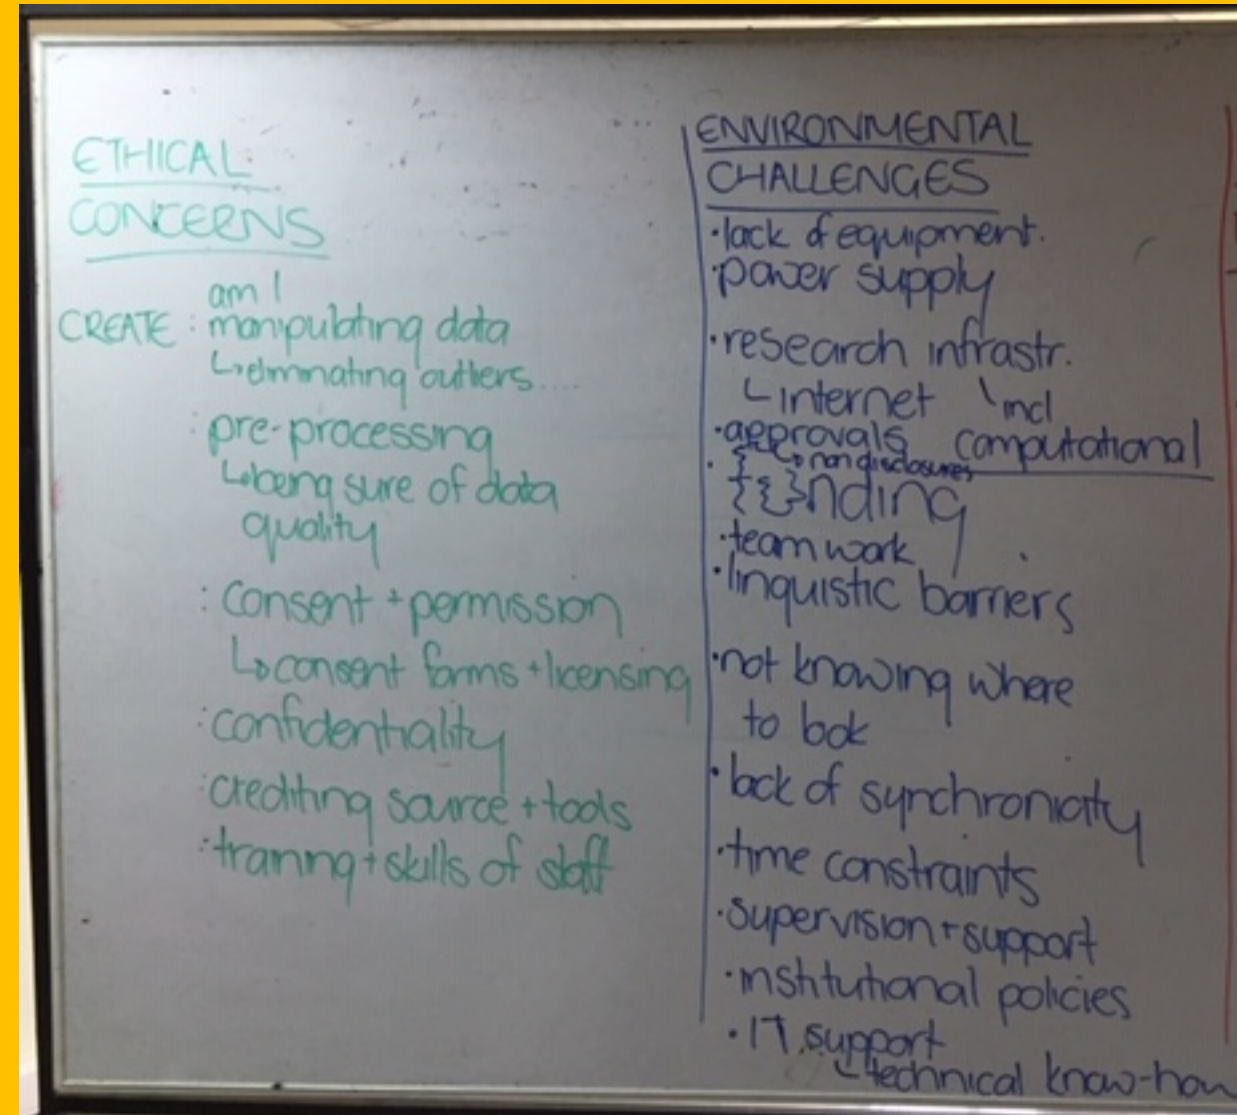 ETHICAL
CONCERNS
am I
CREATE : manipulating data
↳eliminating outliers....
: pre-processing
↳being sure of data
quality
: consent + permission
↳consent forms + licensing
: confidentiality
: crediting source + tools
: training + skills of staff
ENVIRONMENTAL
CHALLENGES
· lack of equipment.
· power supply
· research infrastr.
└ internet \ incl
computational
· approvals
↳ non disclosures
· {{}}nding
· team work
· linguistic barriers
· not knowing where
to look
· lack of synchronicity
· time constraints
· supervision + support
· institutional policies
· IT support
↳technical know-how